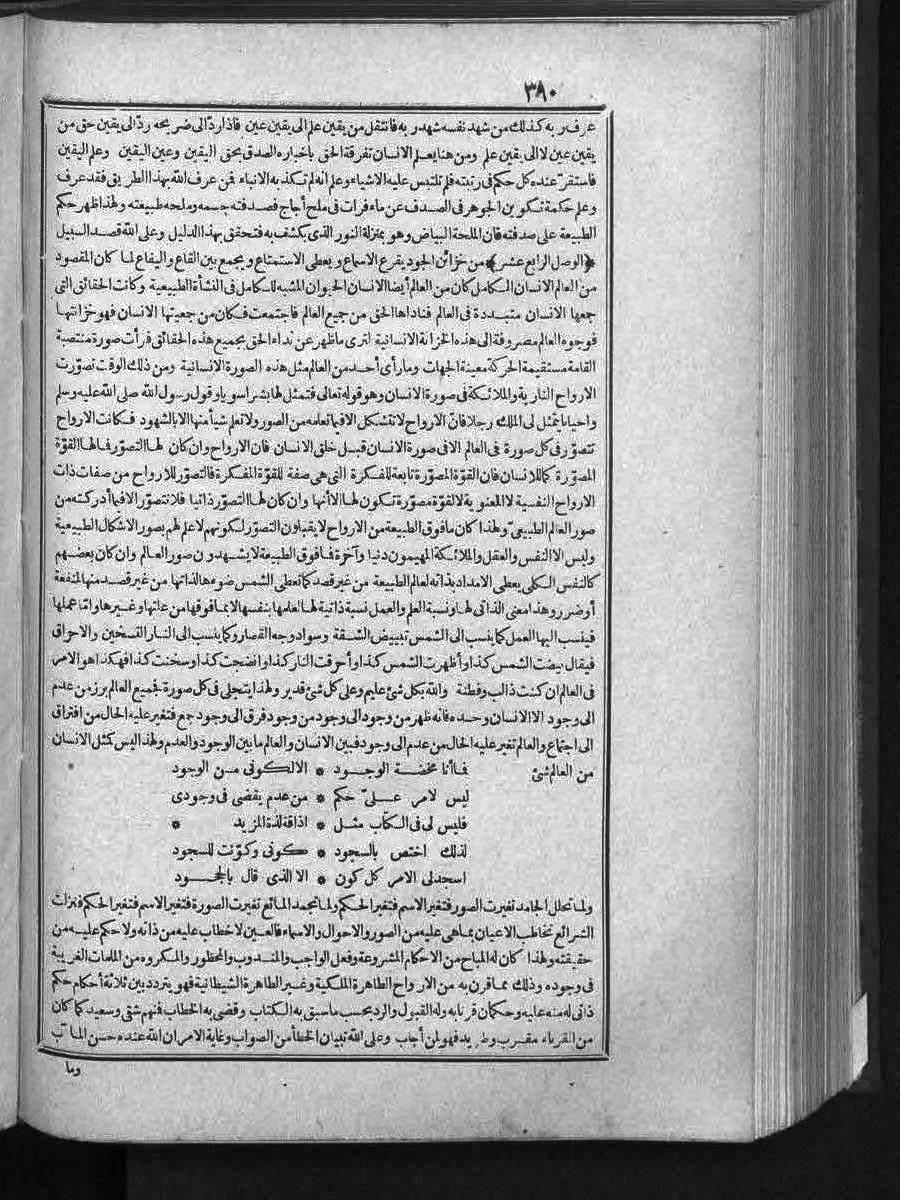 ٣٩٠
عرف ربه كذلك من شهد نفسه شهد ربه فانتقل من يقين علم الى يقين عين فاذا ردّ الى ضريحه ردّ الى يقين حق من
يقين عين لا الى يقين علم ومن هنا يعلم الانسان تفرقة الحق باخباره الصدق بحق اليقين وعين اليقين وعلم اليقين
فاستقرّ عنده كل حكم فى رتبته فلم تلتبس عليه الاشياء وعلم انه لم تكذبه الانباء فمن عرف الله بهذا الطريق فقد عرف
وعلم حكمة تكوين الجوهر فى الصدف عن ماء فرات فى ملح أجاج فصدفته جسمه وملحه طبيعته ولهذا ظهر حكم
الطبيعة على صدفته فان الملحة البياض وهو بمنزلة النور الذى يكشف به فتحقق بهذا الدليل وعلى الله قصد السبيل
﴿الوصل الرابع عشر﴾ من خزائن الجود يقرع الاسماع ويعطى الاستمتاع ويجمع بين القاع واليفاع لما كان المقصود
من العالم الانسان الكامل كان من العالم أيضا الانسان الحيوان المشبه للكامل فى النشأة الطبيعية وكانت الحقائق التى
جمعها الانسان متبددة فى العالم فناداها الحق من جميع العالم فاجتمعت فكان من جمعيتها الانسان فهو خزانتها
فوجوه العالم مصروفة الى هذه الخزانة الانسانية لترى ما ظهر عن نداء الحق بجميع هذه الحقائق فرأت صورة منتصبة
القامة مستقيمة الحركة معينة الجهات وما رأى أحد من العالم مثل هذه الصورة الانسانية ومن ذلك الوقت تصوّرت
الارواح النارية والملائكة فى صورة الانسان وهو قوله تعالى فتمثل لها بشرا سويا وقول رسول الله صلى الله عليه وسلم
واحيانا يتمثل لى الملك رجلا فانّ الارواح لا تتشكل الا فيما تعلمه من الصور ولا تعلم شيأ منها الا بالشهود فكانت الارواح
تتصوّر فى كل صورة فى العالم الا فى صورة الانسان قبل خلق الانسان فان الارواح وان كان لها التصوّر فما لها القوّة
المصوّرة كما للانسان فان القوّة المصوّرة تابعة للفكرة التى هى صفة للقوّة المفكرة فالتصوّر للارواح من صفات ذات
الارواح النفسية لا المعنوية لا لقوّة مصوّرة تكون لها الا أنها وان كان لها التصوّر ذاتيا فلا تتصوّر الا فيما أدركته من
صور العالم الطبيعىّ ولهذا كان ما فوق الطبيعة من الارواح لا يقبلون التصوّر لكونهم لا علم لهم بصور الاشكال الطبيعية
وليس الا النفس والعقل والملائكة المهيمون دنيا وآخرة فما فوق الطبيعة لا يشهدون صور العالم وان كان بعضهم
كالنفس الكلى يعطى الامداد بذاته لعالم الطبيعة من غير قصد كما تعطى الشمس ضوءها لذاتها من غير قصد منها لمنفعة
أو ضرر وهذا معنى الذاتى لها ونسبة العلم والعمل نسبة ذاتية لها لعلمها بنفسها لا بما فوقها من علتها وغيرها وانما عملها
فينسب اليها العمل كما ينسب الى الشمس تبييض الشقة وسواد وجه القصار وكما ينسب الى النار التسخين والاحراق
فيقال بيضت الشمس كذا وأظهرت الشمس كذا وأحرقت النار كذا وانضجت كذا وسخنت كذا فهكذا هو الامر
فى العالم ان كنت ذا لب وفطنة والله بكل شئ عليم وعلى كل شئ قدير ولهذا يتجلى فى كل صورة فجميع العالم برز من عدم
الى وجود الا الانسان وحده فانه ظهر من وجود الى وجود من وجود فرق الى وجود جمع فتغير عليه الحال من افتراق
الى اجتماع والعالم تغير عليه الحال من عدم الى وجود فبين الانسان والعالم ما بين الوجود والعدم ولهذا ليس كمثل الانسان
من العالم شئ
فما أنا مخضة الوجود * الا لكونى من الوجود
ليس لامر علىّ حكم * من عدم يقضى فى وجودى
فليس لى فى الكتاب مثل * اذاقة لذة المزيد *
لذلك اختص بالسجود * كونى وكوّنت للسجود
اسجد لى الامر كل كون * الا الذى قال بالجحود
ولما تحلل الجامد تغيرت الصور فتغير الاسم فتغير الحكم ولما تجمد المائع تغيرت الصورة فتغير الاسم فتغير الحكم فنزلت
الشرائع تخاطب الاعيان بما هى عليه من الصور والاحوال والاسماء فالعين لا خطاب عليه من ذاته ولا حكم عليه من
حقيقته ولهذا كان له المباح من الاحكام المشروعة وفعل الواجب والمندوب والمحظور والمكروه من اللمات الغريبة
فى وجوده وذلك مما قرن به من الارواح الطاهرة الملكية وغير الطاهرة الشيطانية فهو يتردد بين ثلاثة أحكام حكم
ذاتى له منه عليه وحكمان قرنا به وله القبول والرد بحسب ما سبق به الكتاب وقضى به الخطاب فمنهم شقى وسعيد كما كان
من القرناء مقرب وطريد فهو لمن أجاب وعلى الله تبيان الخطأ من الصواب وغاية الامر ان الله عنده حسن المآب
وما